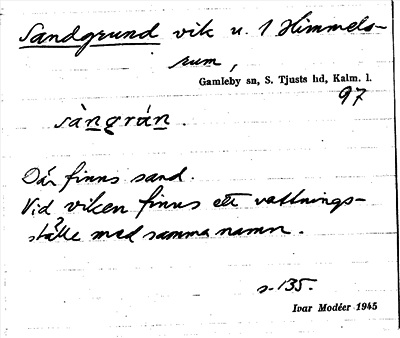 Sandgrund vik u. 1 Himmels-
rum,
Gamleby sn, S. Tjusts hd, Kalm. l.
97
sàngrán.
Där finns sand.
Vid viken finns ett vattnings-
ställe med samma namn.
s. 135.
Ivar Modéer 1945